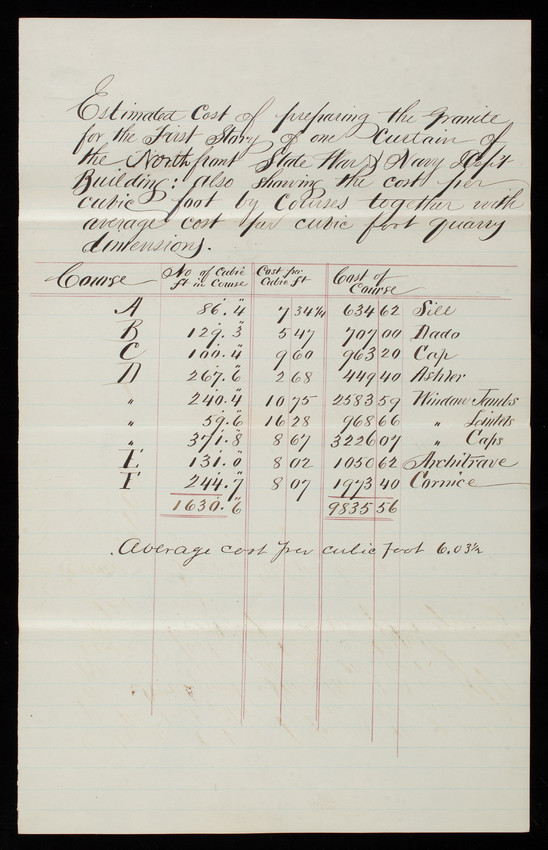 Estimated Cost of preparing the Granite
for the First Story of one Curtain of
the North front State War & Navy Dep't
Building: also showing the cost per
cubic foot by Courses together with
average cost per cubic foot quarry
dimensions.
Course No of Cubic ft in Course Cost per Cubic ft Cost of Course
A 86'.4" 7 34¼ 634 62 Sill
B 129'.3" 5 47 707 00 Dado
C 100'.4" 9 60 963 20 Cap
D 267'.6" 2 68 449 40 Ashler
" 240'.4" 10 75 2583 59 Window Jambs
" 59'.6" 16 28 968 66 " Lintels
" 371'.8" 8 67 3226 07 " Caps
E 131'.0" 8 02 1050 62 Architrave
F 244'.7" 8 07 1973 40 Cornice
1630'.6" 9835 56
Average cost per cubic foot 6.03½